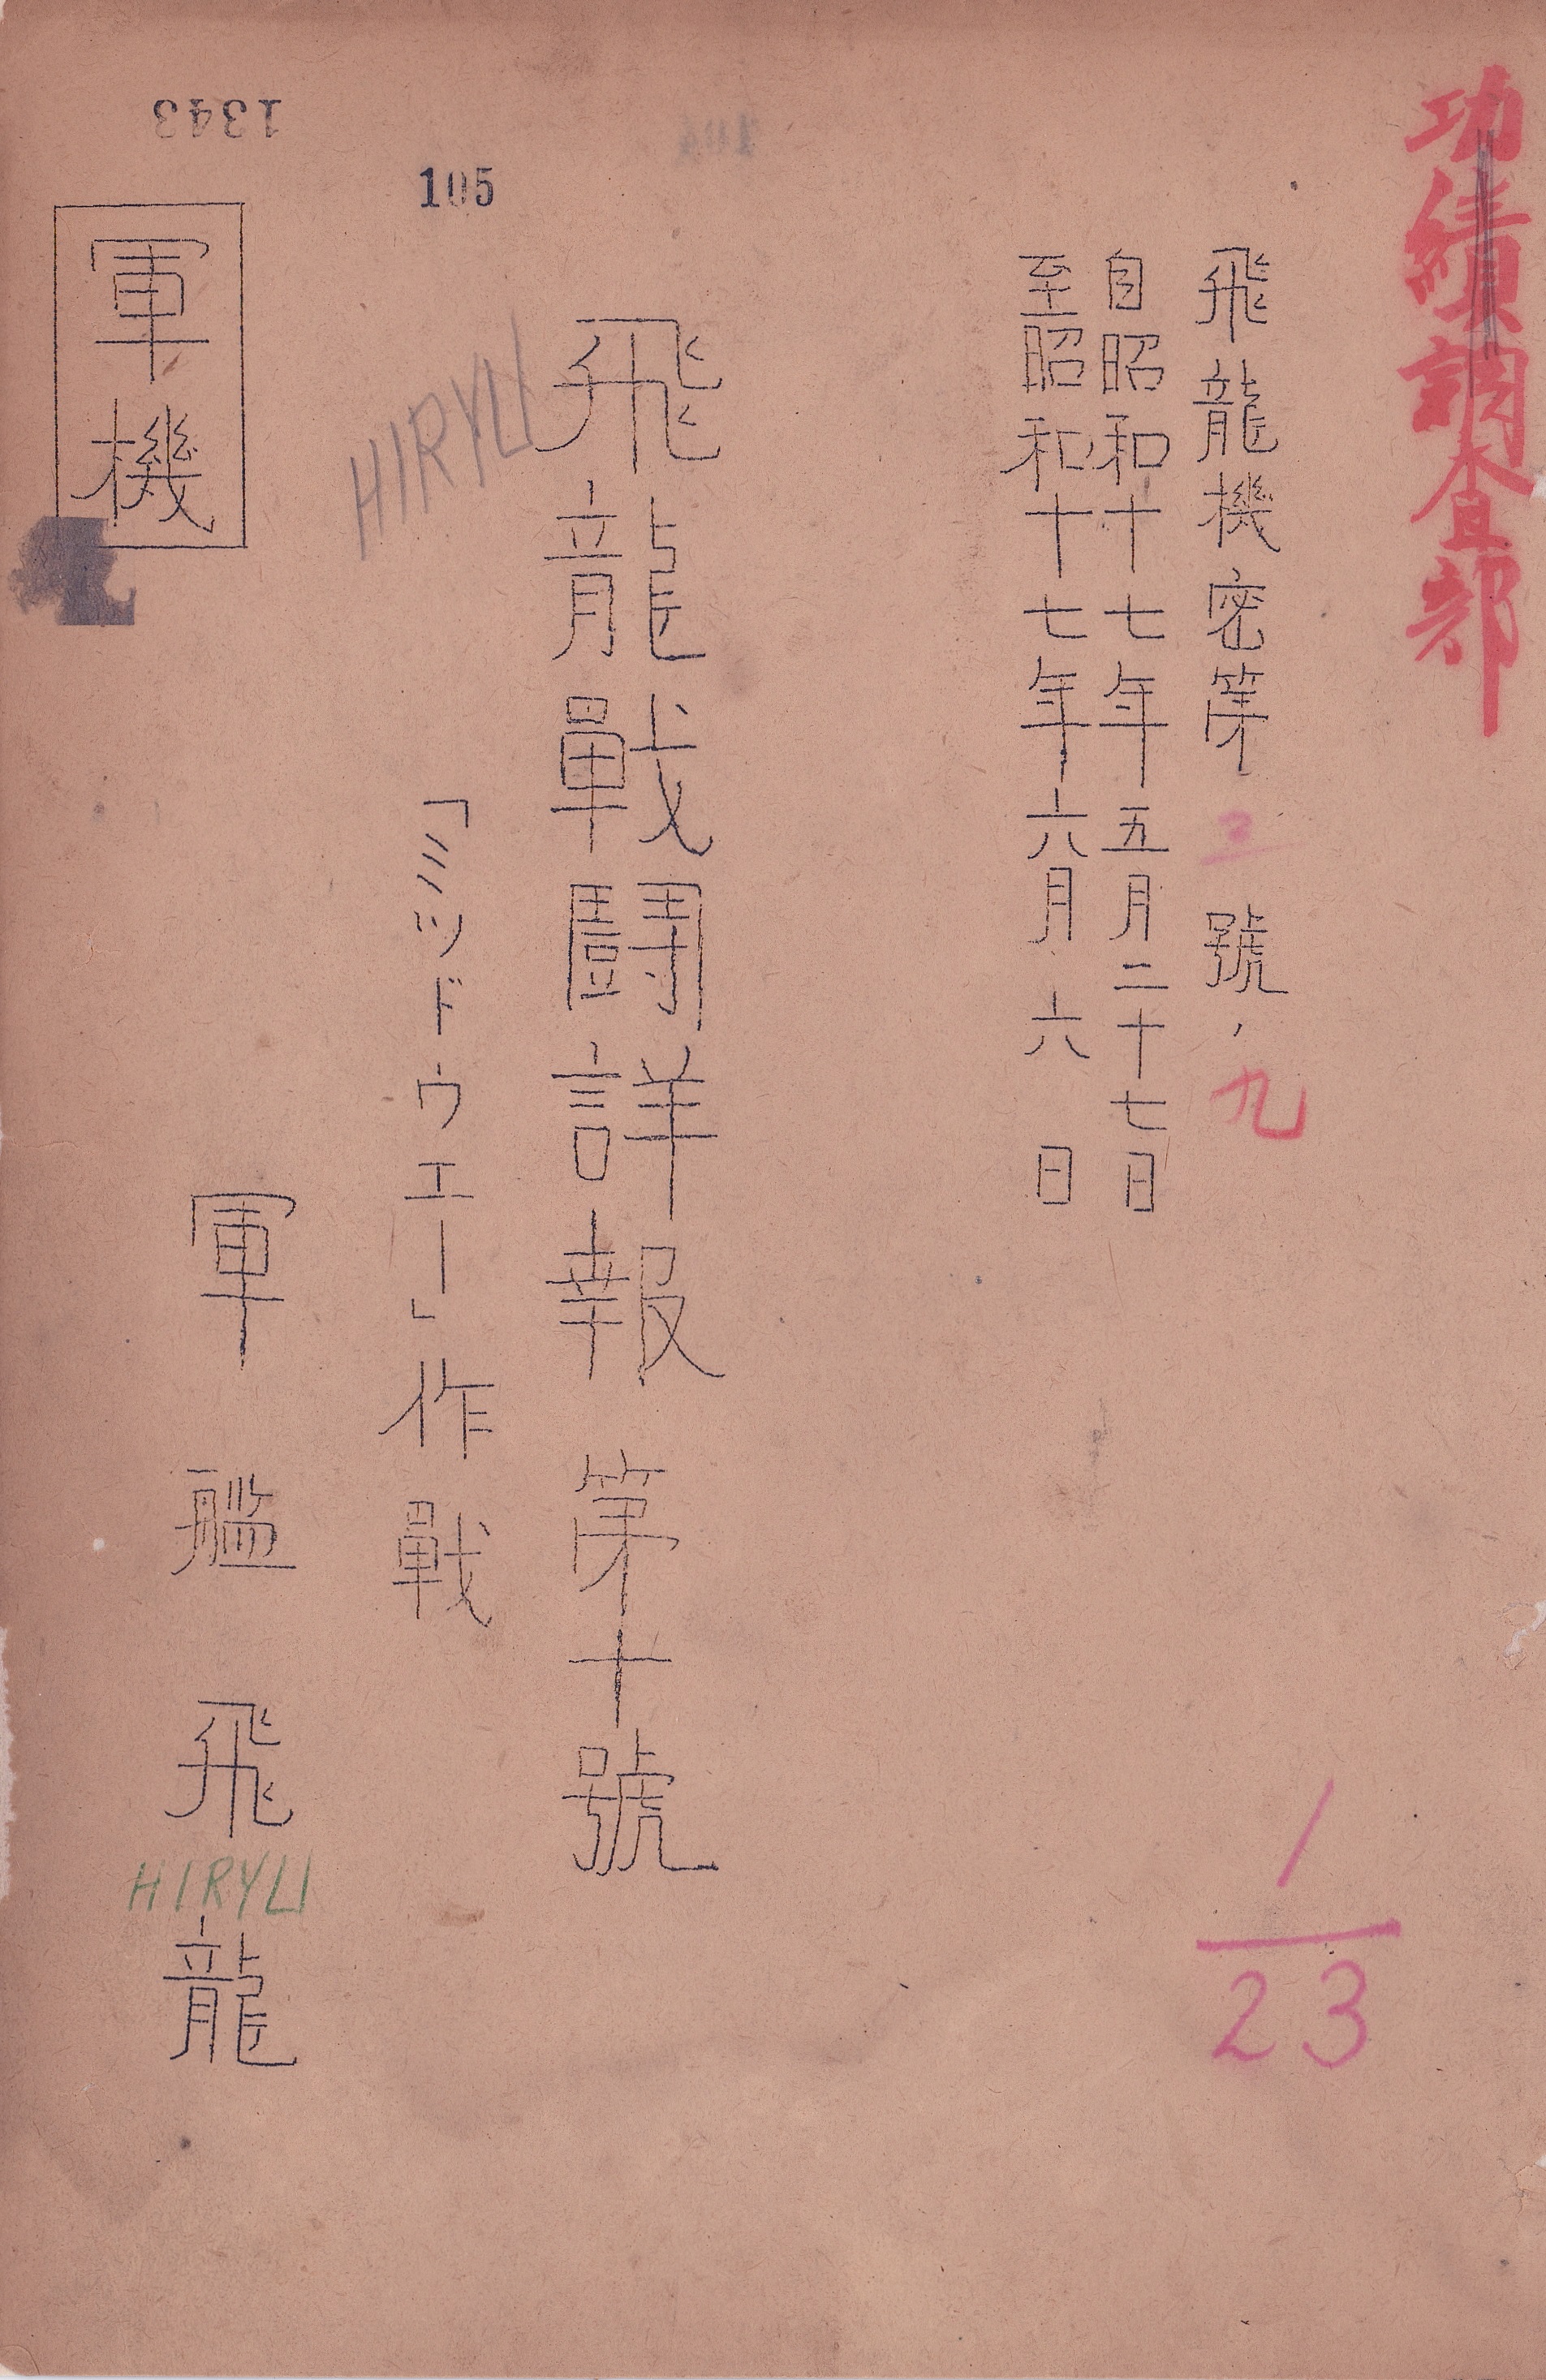 功績調査部
飛龍機密第 三 號ノ九
自昭和十七年五月二十七日
至昭和十七年六月六日
飛龍戰鬪詳報 第十號
HIRYU
105
「ミッドウエー」作戰
軍艦 飛龍
HIRYU
1343
軍機
1
23